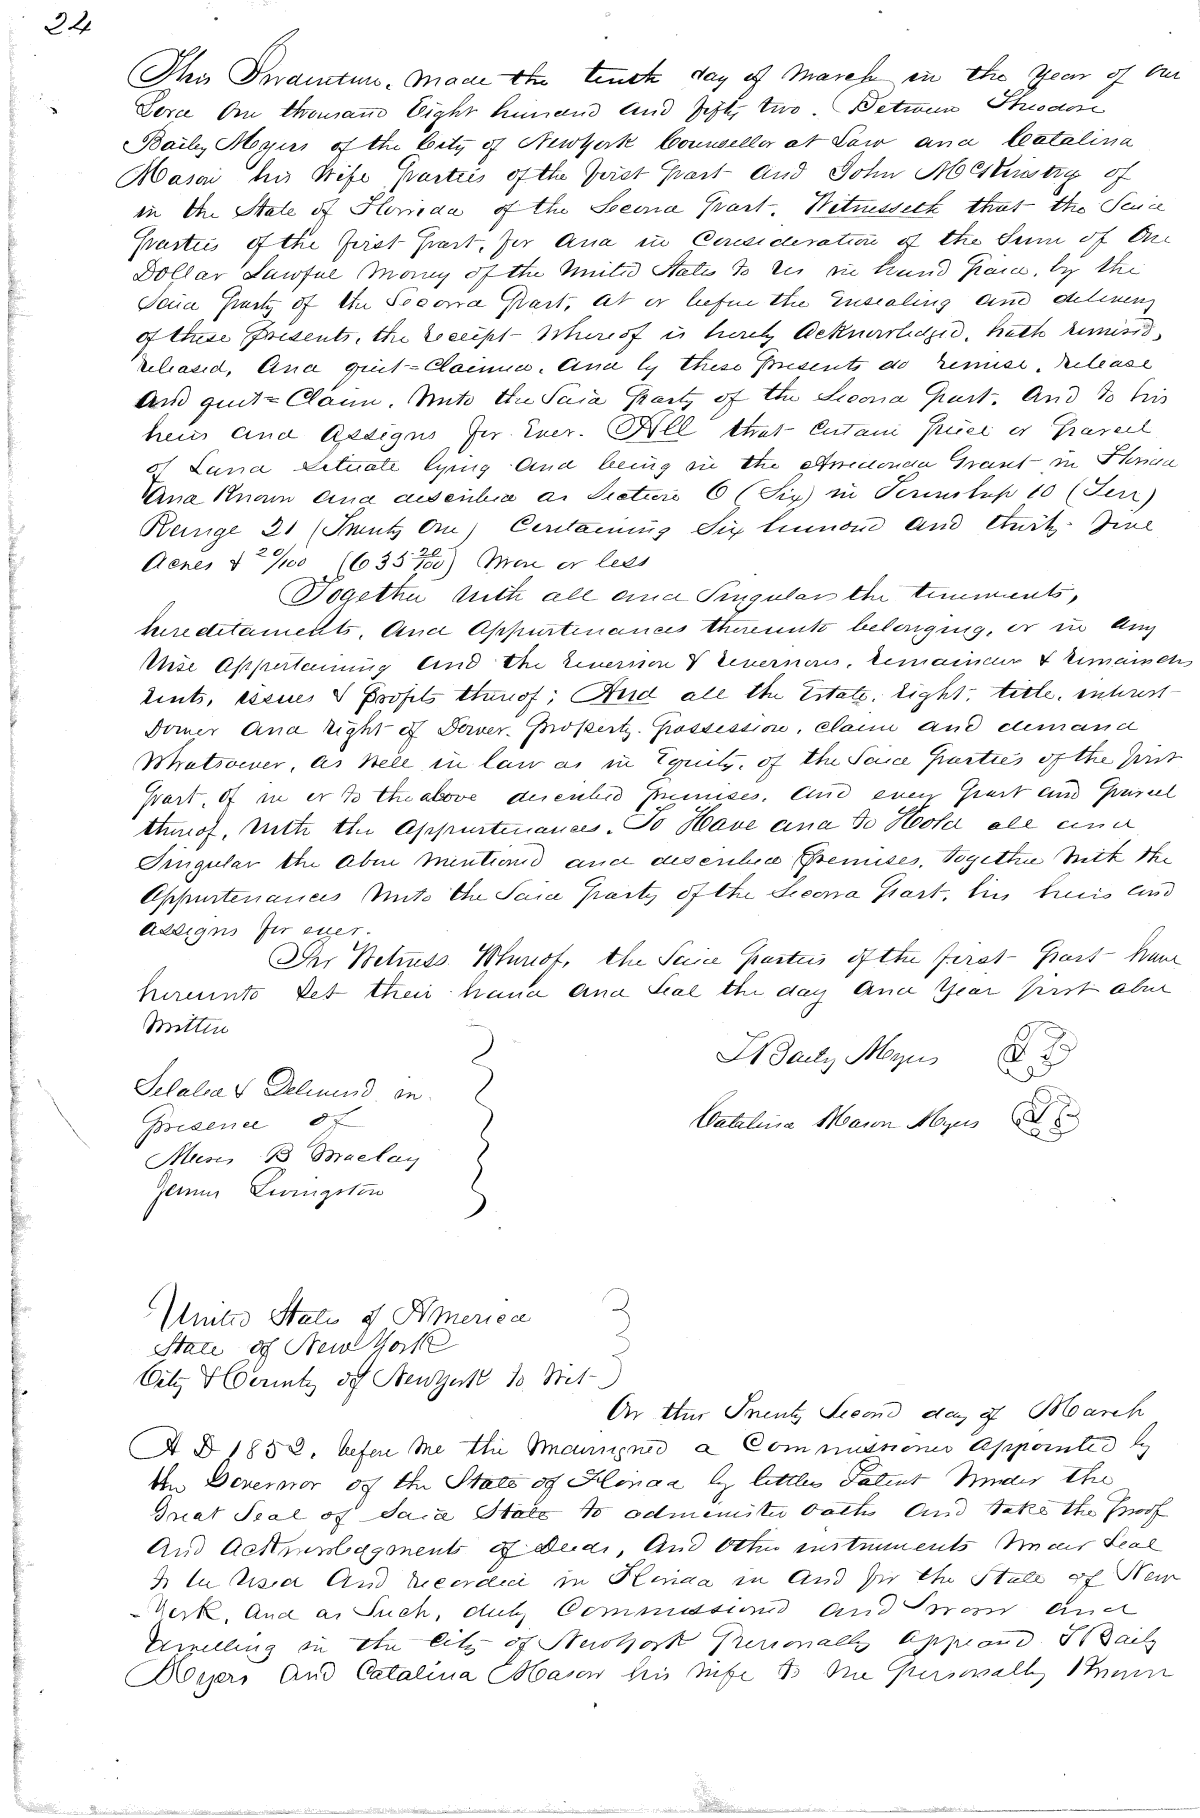 24
This Indenture, Made the tenth day of March in the Year of Our
Lord One thousand Eight hundred and fifty two. Between Theodore
Bailey Myers of the City of Newyork Counsellor at Law and Catalina
Mason his Wife Parties of the first Part And John McKinstry of
in the State of Florida of the Second Part. Witnesseth that the Said
Parties of the first Part, for And in Consideration of the Sum of One
Dollar Lawful Money of the United States to us in hand Paid, by the
Said Party of the Second Part, at or before the Ensealing and delivery
of these Presents, the receipt Whereof is hereby Acknowledged, hath remised,
released, And quit=Claimed, And by these Presents do remise, release
And quit=Claim, Unto the Said Party of the Second Part, And to his
heirs and Assigns for Ever. All that Certain Piece or Parcel
of Land Situate lying And being in the Arredondo Grant in Florida
And Known and described as Section 6 (Six) in Township 10 (Ten)
Range 21 (Twenty One) Containing Six hundred and thirty five
Acres & 20/100 (635 20/100) More or less
Together With all and Singular the tenements,
hereditaments, And Appurtenances thereunto belonging, or in Any
Wise Appertaining And the reversion & reversions, remainder & remainders
rents, issues & Profits thereof; And all the Estate, right, title, interest
Dower And right of Dower, Property, Possession, Claim and demand
Whatsoever, as Well in law as in Equity, of the Said Parties of the first
Part, of in or to the above described Premises, And every Part and Parcel
thereof, With the Appurtenances. To Have and to Hold all and
Singular the Above Mentioned and described Premises, together With the
Appurtenances Unto the Said Party of the Second Part, his heirs and
Assigns for ever.
In Witness Whereof, the Said Parties of the first Part have
hereunto Set their hand And Seal the day And Year first above
Written
T Baily Myers
Sealed & Delivered in
Catalina Mason Myers
Presence of
Moses B Maclay
James Livingston
United States of America
State of New York
City & County of Newyork to Wit
On this Twenty Second day of March
A D 1852, before Me the Undersigned a Commissioner Appointed by
the Governor of the State of Florida by letters Patent Under the
Great Seal of Said State to administer oaths and take the Proof
And Acknowledgments of Deeds, And Other instruments Under Seal
to be Used And recorded in Florida in And for the State of New
-York, And as Such, duly Commissioned And Sworn and
dwelling in the City of Newyork Personally Appeared T Baily
Myers And Catalina Mason his wife to Me Personally Known